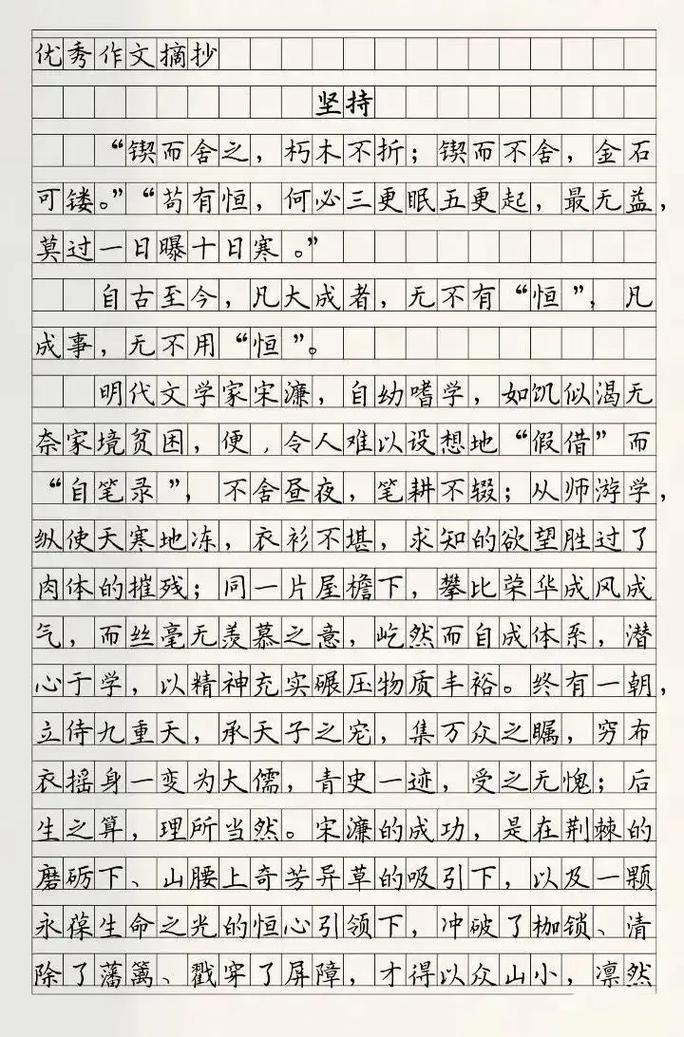 优秀作文摘抄
坚持
“锲而舍之，朽木不折；锲而不舍，金石
可镂。”“苟有恒，何必三更眠五更起，最无益，
莫过一日曝十日寒。”
自古至今，凡大成者，无不有“恒”，凡
成事，无不用“恒”。
明代文学家宋濂，自幼嗜学，如饥似渴无
奈家境贫困，便，令人难以设想地“假借”而
“自笔录”，不舍昼夜，笔耕不辍；从师游学，
纵使天寒地冻，衣衫不堪，求知的欲望胜过了
肉体的摧残；同一片屋檐下，攀比荣华成风成
气，而丝毫无羡慕之意，屹然而自成体系，潜
心于学，以精神充实碾压物质丰裕。终有一朝，
立侍九重天，承天子之宠，集万众之瞩，穷布
衣摇身一变为大儒，青史一迹，受之无愧；后
生之算，理所当然。宋濂的成功，是在荆棘的
磨砺下、山腰上奇芳异草的吸引下，以及一颗
永葆生命之光的恒心引领下，冲破了枷锁、清
除了藩篱、戳穿了屏障，才得以众山小，凛然